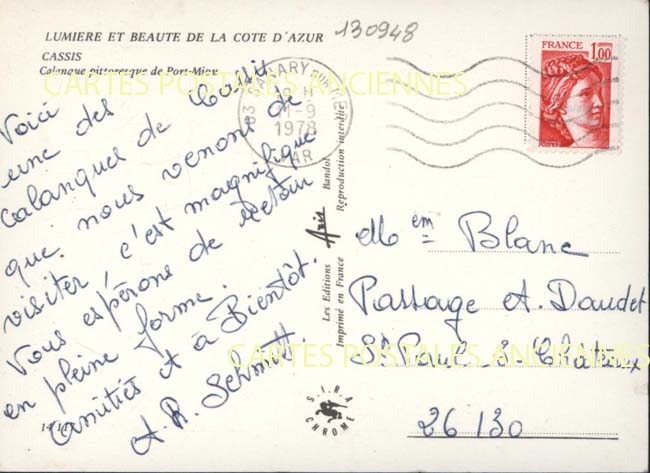 130948
LUMIERE ET BEAUTE DE LA COTE D'AZUR
CASSIS
Calanque pittoresque de Port-Miou
CARTES POSTALES ANCIENNES
Voici
une des
Calanques de Cassis
que nous venons de
visiter, c'est magnifique
Vous espérons de retour
en pleine forme.
Amitiés et à Bientôt.
A. R. Schmitt
14 117
83
1-9
1978
VAR
Les Editions Aris Bandol
Imprimé en France Reproduction interdite
S.I.R.A.
CHROME
FRANCE
1,00
POSTES
Mem Blanc
Passage A. Daudet
St Paul-3-Châteaux
26130
CARTES POSTALES ANCIENNES